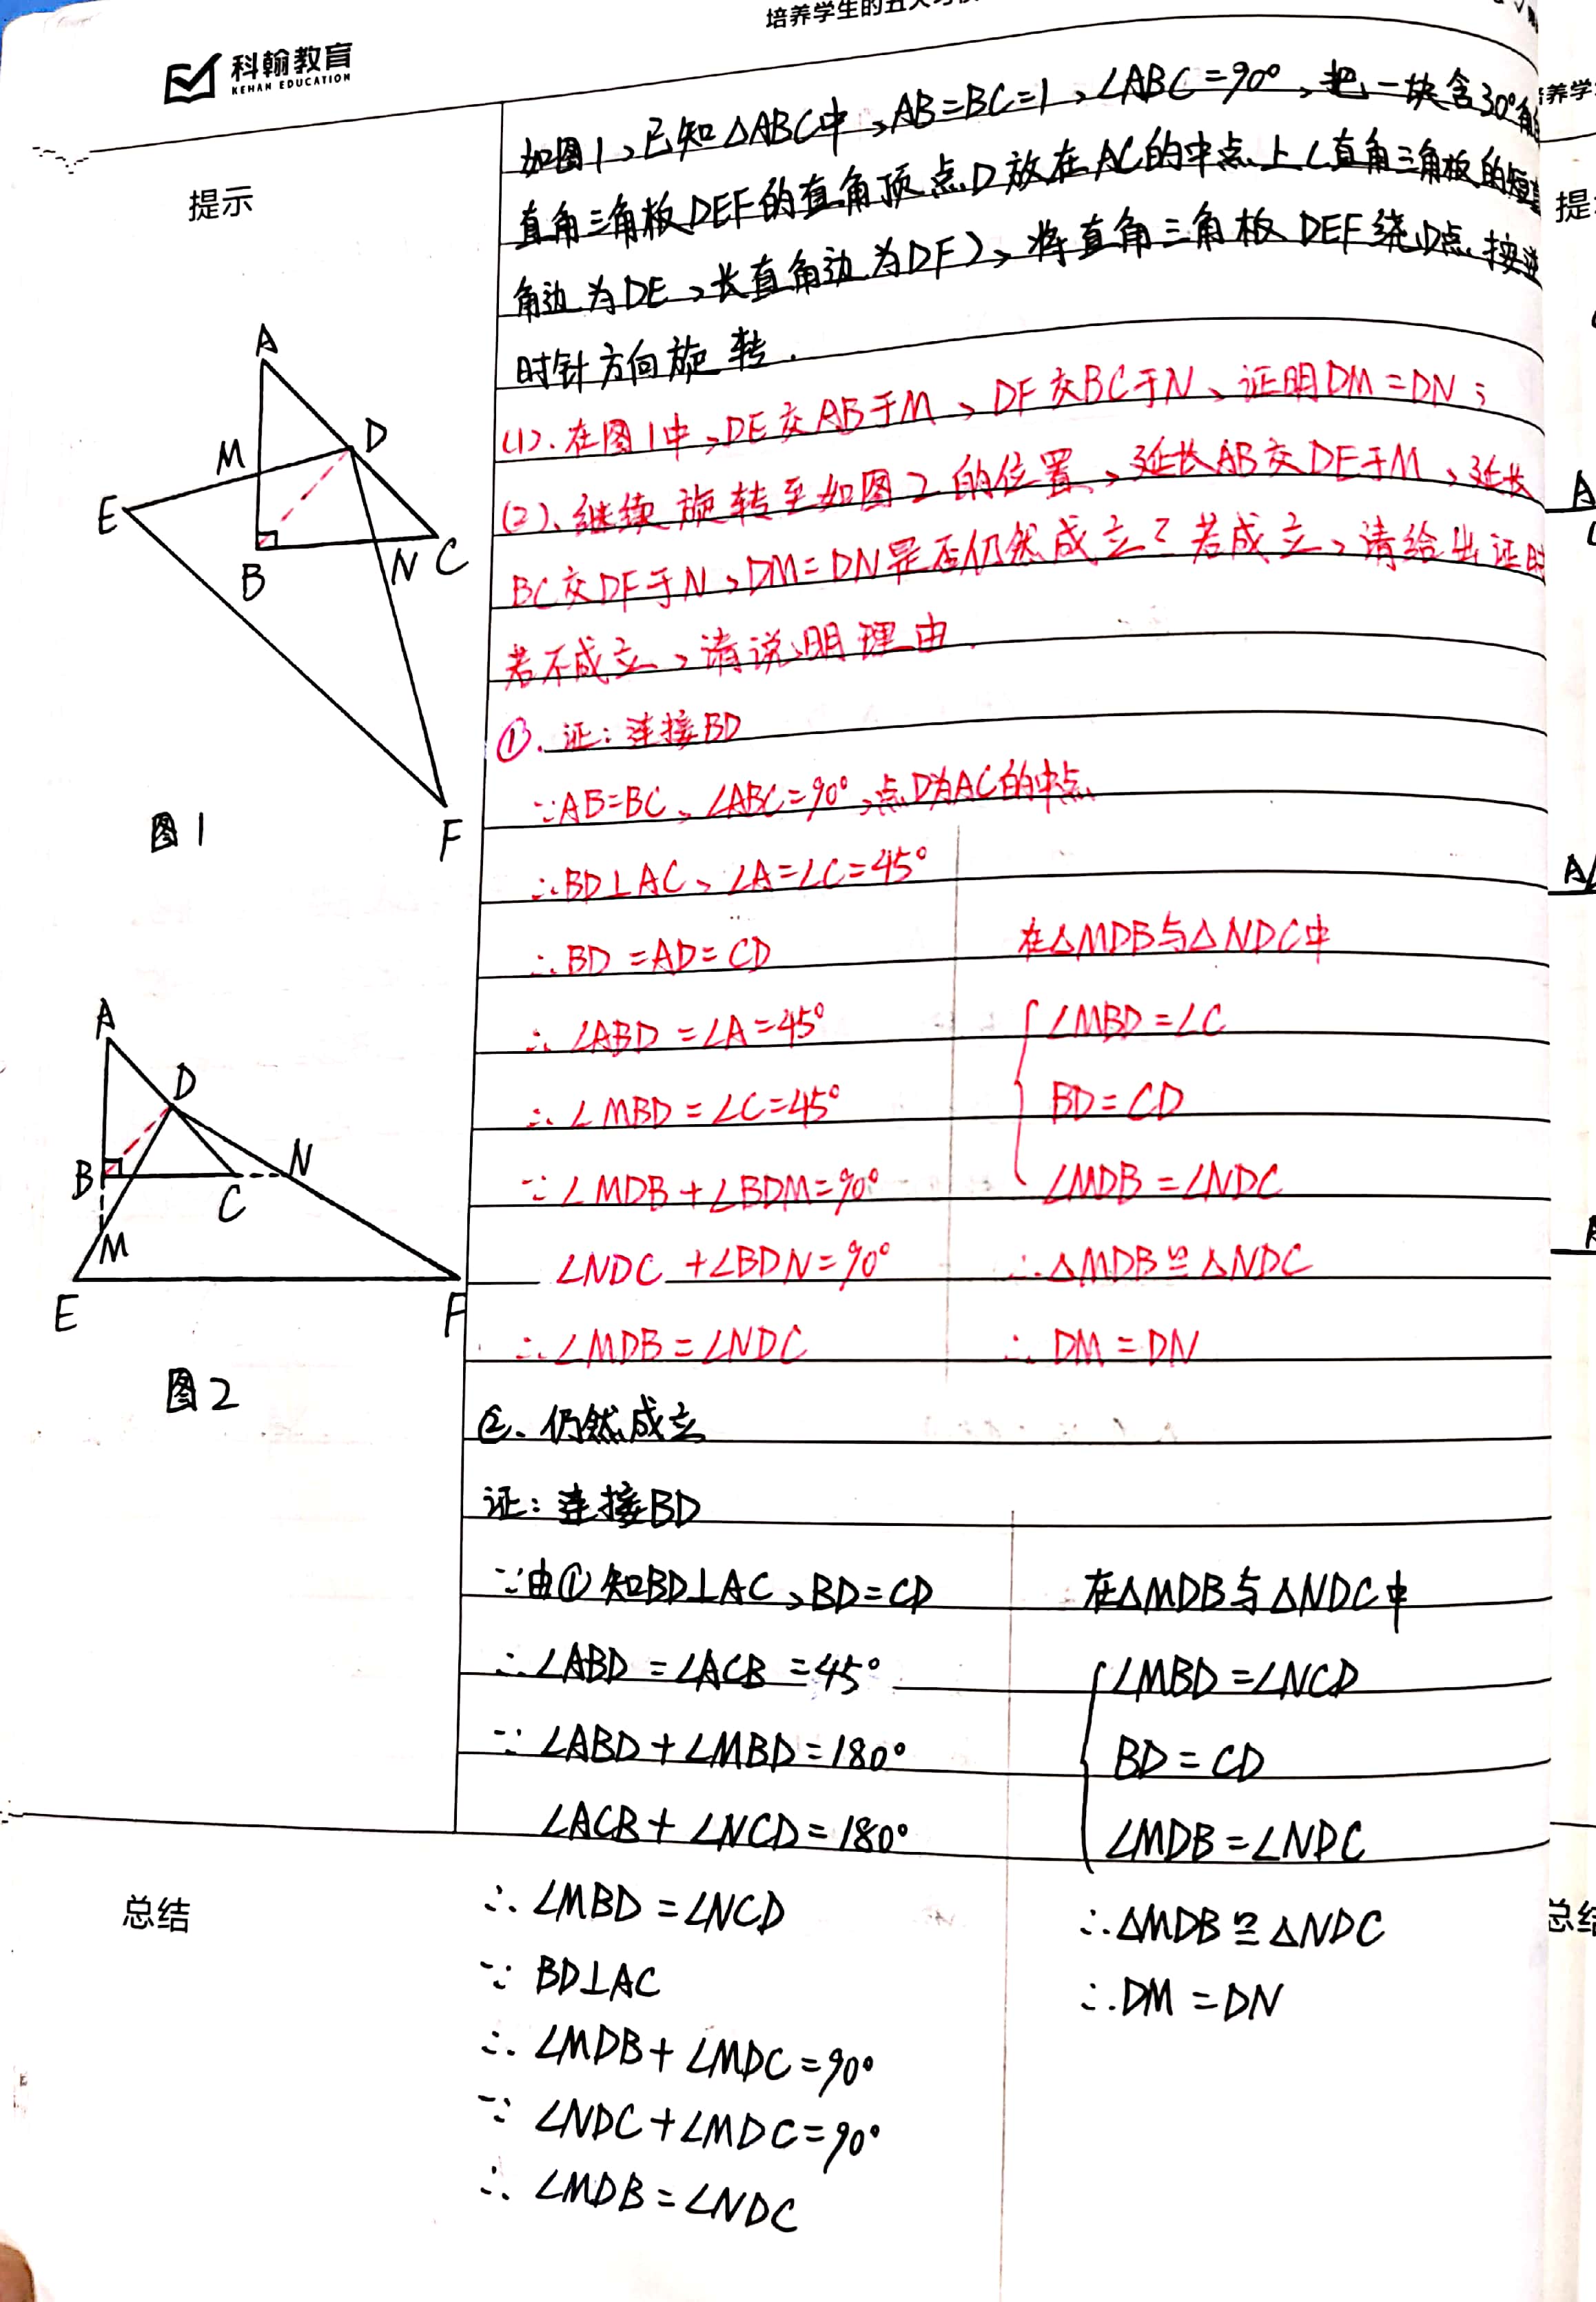 培养学生的五大习惯
科翰教育
KEHAN EDUCATION
提示
如图1,已知△ABC中,AB=BC=1,∠ABC=90°,把一块含30°角的
直角三角板DEF的直角顶点D放在AC的中点上(直角三角板的短直
角边为DE,长直角边为DF),将直角三角板DEF绕D点按逆
时针方向旋转.
(1).在图1中,DE交AB于M,DF交BC于N、证明DM=DN;
(2)、继续旋转至如图2的位置,延长AB交DE于M,延长
BC交DF于N,DM=DN是否仍然成立?若成立,请给出证明
若不成立,请说明理由.
①.证:连接BD
∵AB=BC、∠ABC=90°,点D为AC的中点
∴BD⊥AC、∠A=∠C=45°
∴BD=AD=CD
∴∠ABD=∠A=45°
∴∠MBD=∠C=45°
∵∠MDB+∠BDM=90°
∠NDC+∠BDN=90°
∴∠MDB=∠NDC
在△MDB与△NDC中
∠MBD=∠C
BD=CD
∠MDB=∠NDC
∴△MDB≌△NDC
∴DM=DN
②.仍然成立
证:连接BD
∵由①知BD⊥AC,BD=CD
∴∠ABD=∠ACB=45°
∵∠ABD+∠MBD=180°
∠ACB+∠NCD=180°
∴∠MBD=∠NCD
∵BD⊥AC
∴∠MDB+∠MDC=90°
∵∠NDC+∠MDC=90°
∴∠MDB=∠NDC
在△MDB与△NDC中
∠MBD=∠NCD
BD=CD
∠MDB=∠NDC
∴△MDB≌△NDC
∴DM=DN
A
D
M
E
B
N
C
F
图1
A
D
B
N
C
M
E
F
图2
总结
养学
提
A
A
总结